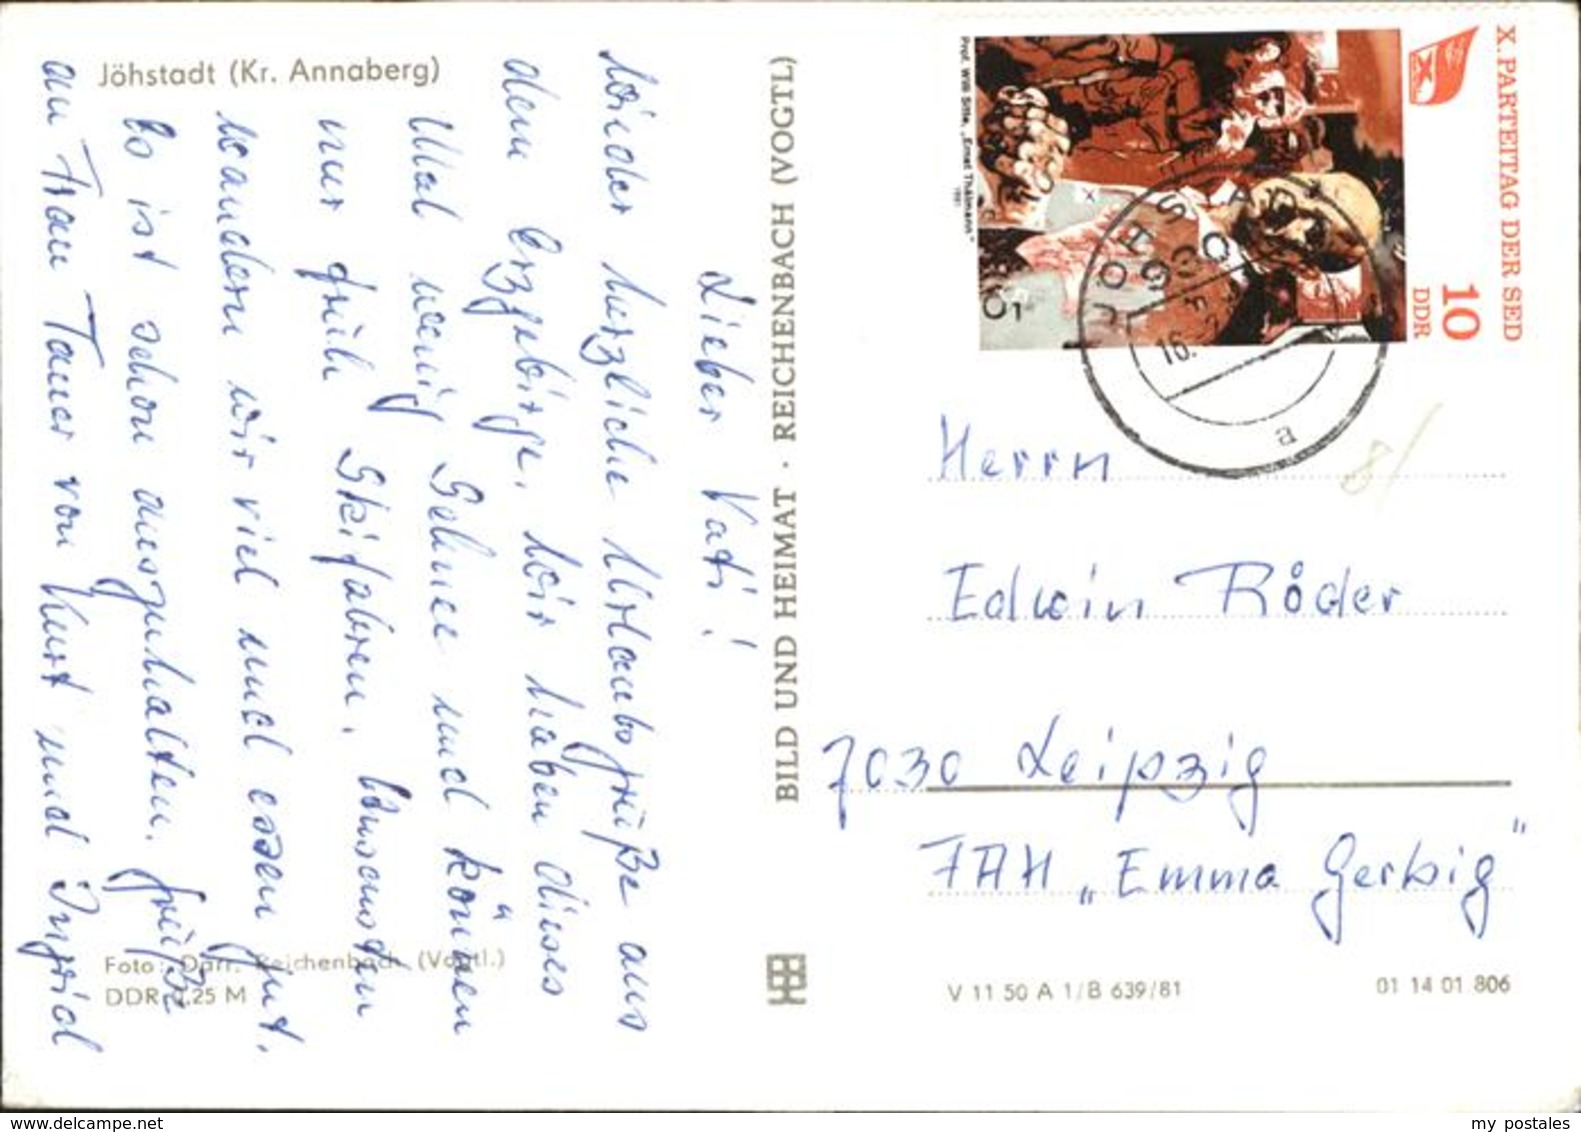 Jöhstadt (Kr. Annaberg)
Lieber Vati!
Wieder herzliche Urlaubsgrüße aus
dem Erzgebirge. Wir haben dieses
Mal wenig Schnee und können
nur früh Skifahren. Ansonsten
wandern wir viel und essen gut.
Es ist schon auszuhalten. Grüße
an Frau Tauer von Kurt und Ingrid
Foto: Darr, Reichenbach (Vogtl.)
DDR 0,25 M
BILD UND HEIMAT · REICHENBACH (VOGTL)
X. PARTEITAG DER SED
10
DDR
Prof. Willi Sitte, „Ernst Thälmann“
1981
JÖHSTADT
930
16.
a
8/
Herrn
Edwin Röder
7030 Leipzig
FAH „Emma Gerbig"
V 11 50 A 1/B 639/81
01 14 01 806
www.delcampe.net
my postales